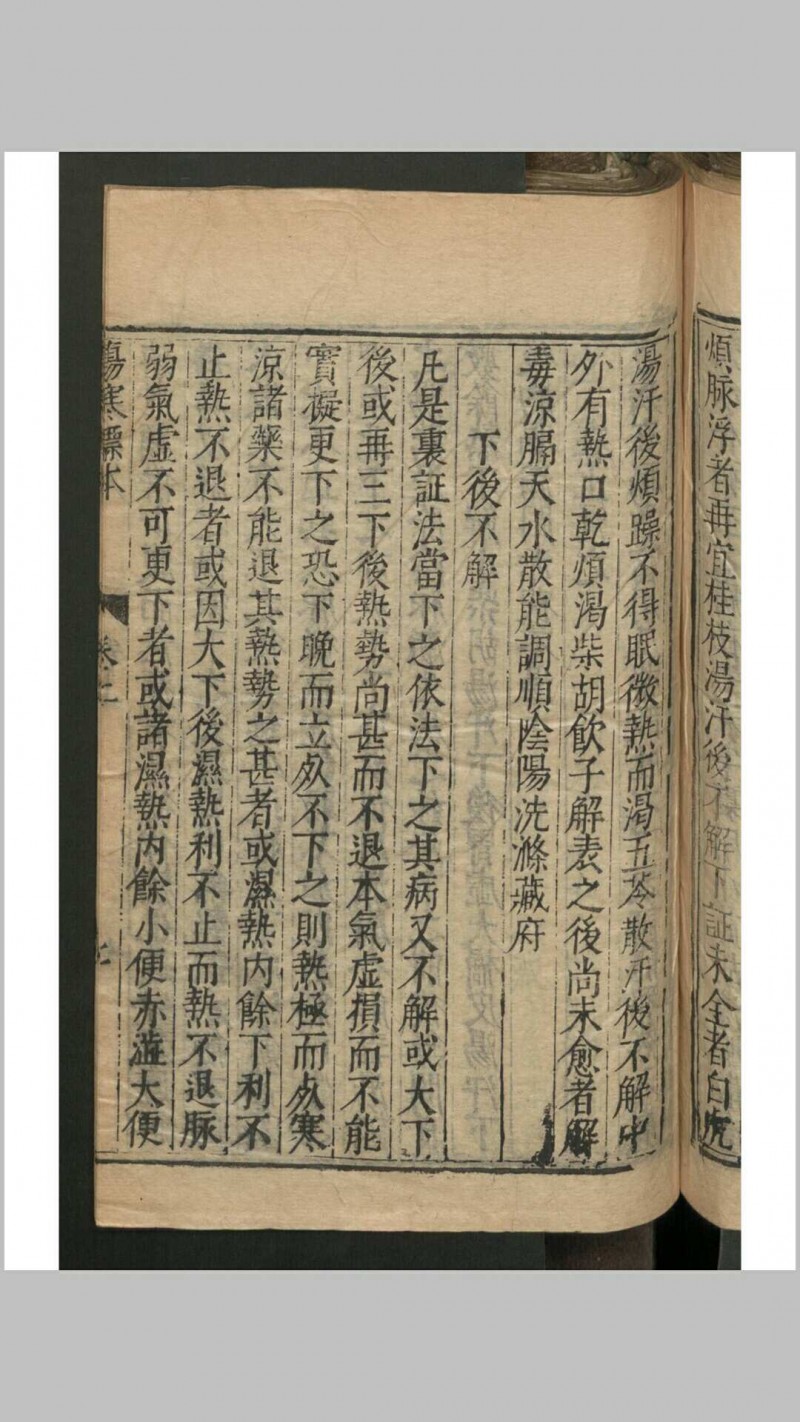 煩脉浮者再宜桂枝湯汗後不解下証未全者白虎
湯汗後煩躁不得眠微熱而渴五苓散汗後不解中
外有熱口乾煩渴柴胡飲子解表之後尚未愈者解
毒涼膈天水散能調順陰陽洗滌藏府
下後不解
凡是裏証法當下之依法下之其病又不解或大下
後或再三下後熱勢尚甚而不退本氣虚損而不能
實擬更下之恐下晚而立㱙不下之則熱極而㱙寒
涼諸藥不能退其熱勢之甚者或濕熱内餘下利不
止熱不退者或因大下後濕熱利不止而熱不退脉
弱氣虚不可更下者或諸濕熱内餘小便赤澁大便
傷寒標本